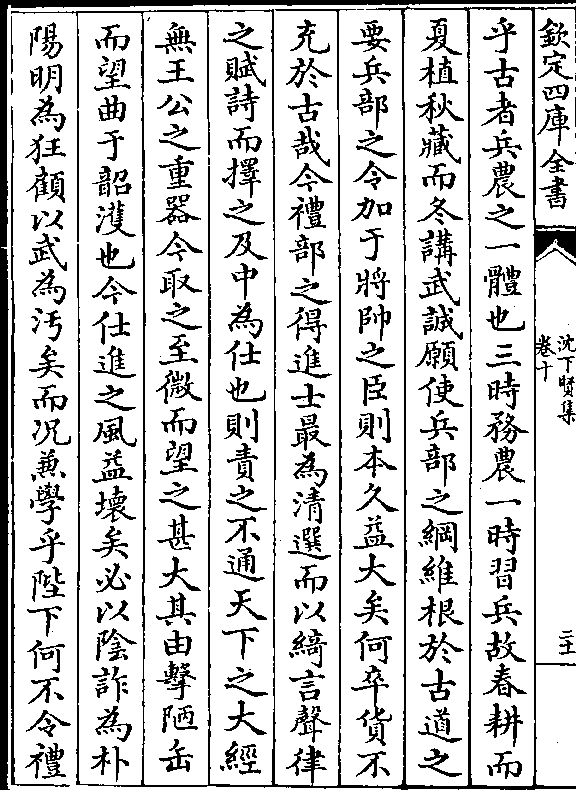 欽定四庫全書
沈下賢集
卷十
二十
乎古者兵農之一體也三時務農一時習兵故春耕而
夏植秋藏而冬講武誠願使兵部之綱維根於古道之
要兵部之令加于將帥之臣則本久益大矣何卒貨不
充於古哉今禮部之得進士最為清選而以綺言聲律
之賦詩而擇之及中為仕也則責之不通天下之大經
無王公之重器今取之至微而望之甚大其由擊陋缶
而望曲于韶濩也今仕進之風益壞矣必以陰詐為朴
陽明為狂顧以武為汚矣而况兼學乎陛下何不令禮